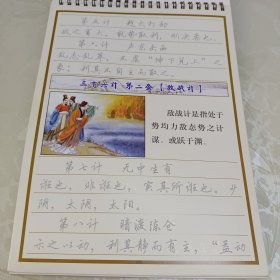 第五计 趁火打劫
敌之害大，就势取利，刚决柔也。
第六计 声东击西
敌志乱萃，不虞"坤下兑上"之
象；利其不自主而取之。
三十六计 第二套【敌战计】
敌战计是指处于
势均力敌态势之计
谋。或跃于渊。
第七计 无中生有
诳也，非诳也，实其所诳也。少
阴，太阴，太阳。
第八计 暗渡陈仓
示之以动，利其静而有主，"益动